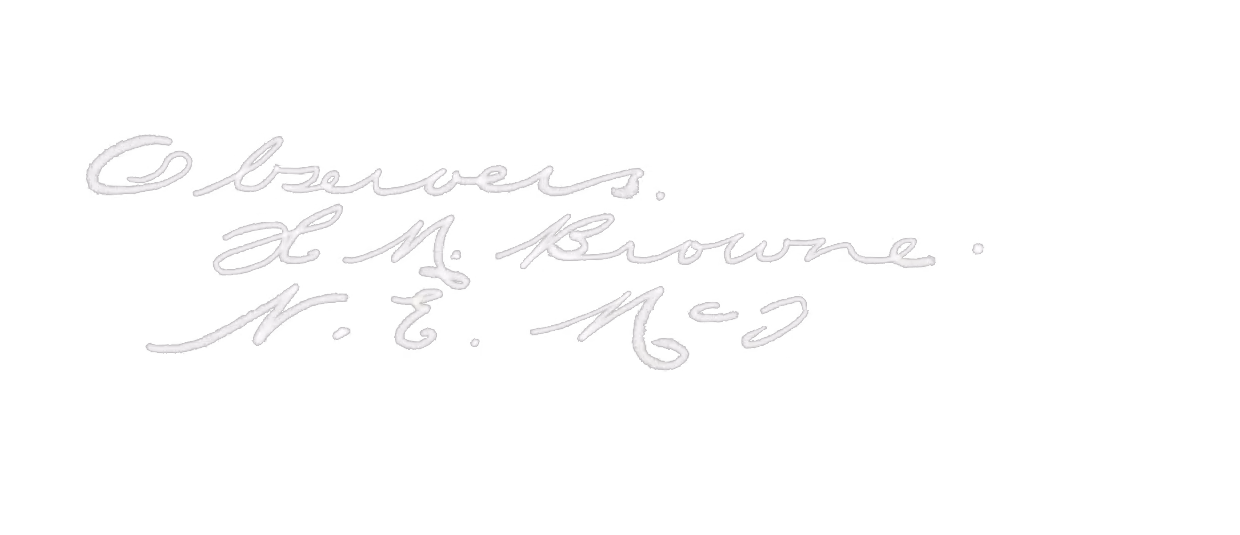 Observers.
H. M. Browne.
N. E. McI